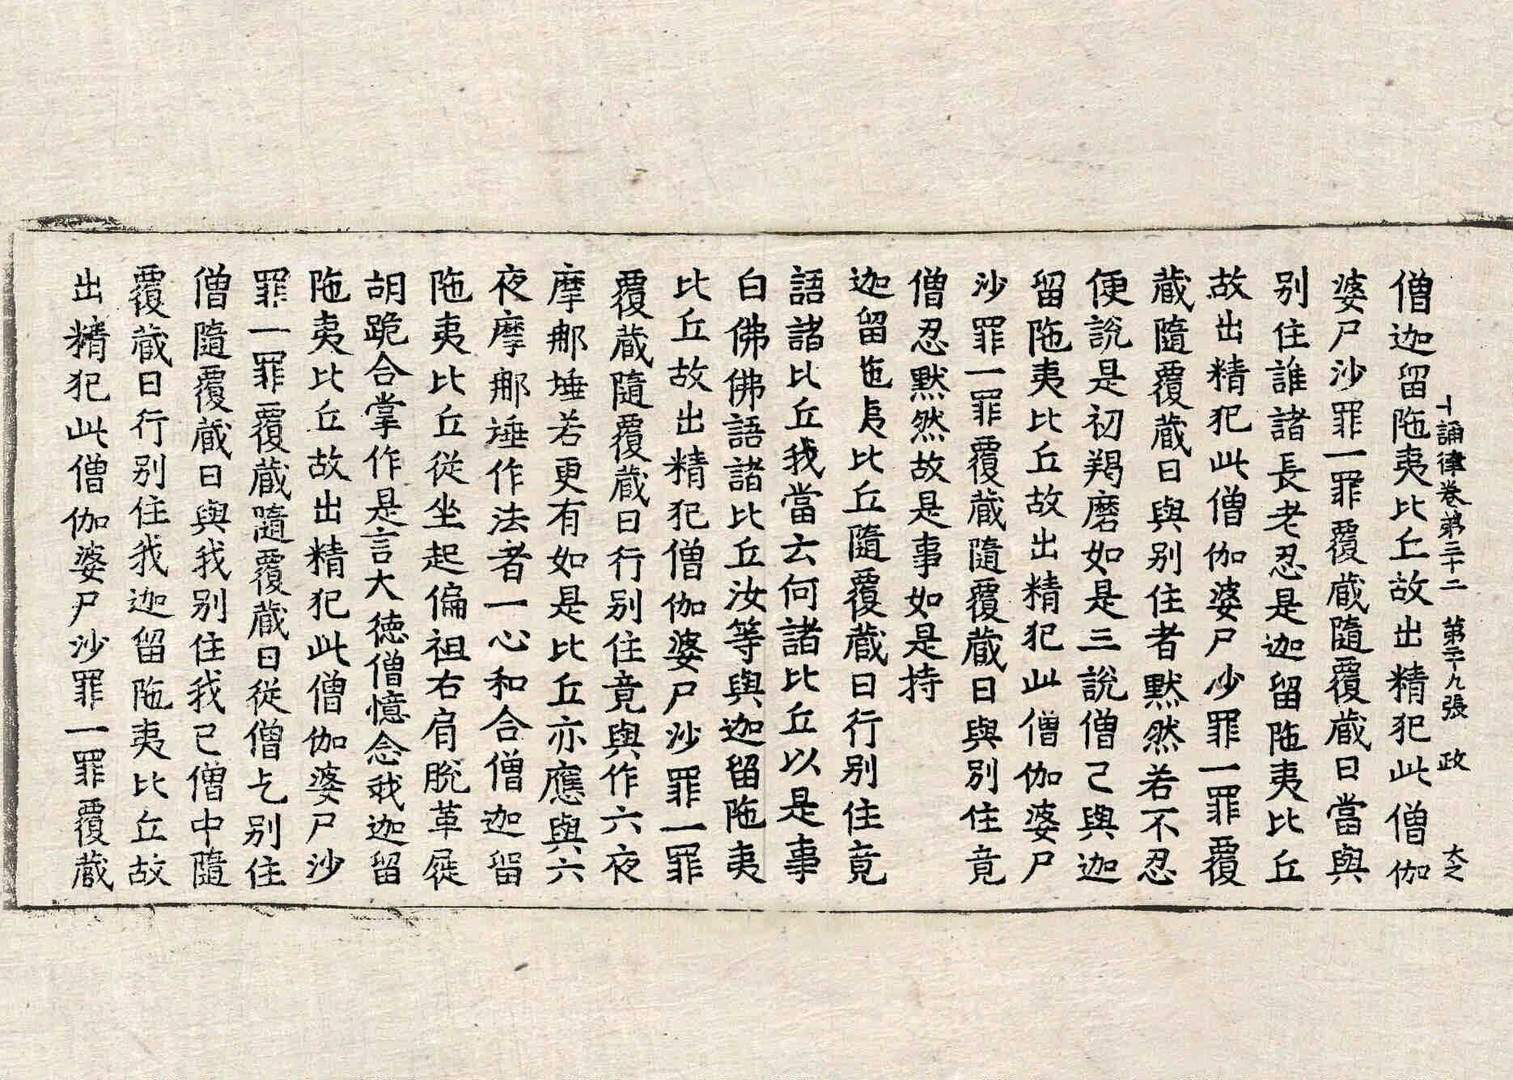 十誦律卷第三十二 第二十九張 政 大之
僧迦留陁夷比丘故出精犯此僧伽
婆尸沙罪一罪覆蔵隨覆蔵日當與
別住誰諸長老忍是迦留陁夷比丘
故出精犯此僧伽婆尸沙罪一罪覆
蔵隨覆蔵日與別住者默然若不忍
便說是初羯磨如是三說僧已與迦
留陁夷比丘故出精犯此僧伽婆尸
沙罪一罪覆蔵隨覆蔵日與別住竟
僧忍默然故是事如是持
迦留陁夷比丘隨覆蔵日行別住竟
語諸比丘我當云何諸比丘以是事
白佛佛語諸比丘汝等與迦留陁夷
比丘故出精犯僧伽婆尸沙罪一罪
覆蔵隨覆蔵日行別住竟與作六夜
摩那埵若更有如是比丘亦應與六
夜摩那埵作法者一心和合僧迦留
陁夷比丘從坐起偏袒右肩脫革屣
胡跪合掌作是言大徳僧憶念我迦留
陁夷比丘故出精犯此僧伽婆尸沙
罪一罪覆蔵隨覆蔵日從僧乞別住
僧隨覆蔵日與我別住我已僧中隨
覆蔵日行別住我迦留陁夷比丘故
出精犯此僧伽婆尸沙罪一罪覆蔵